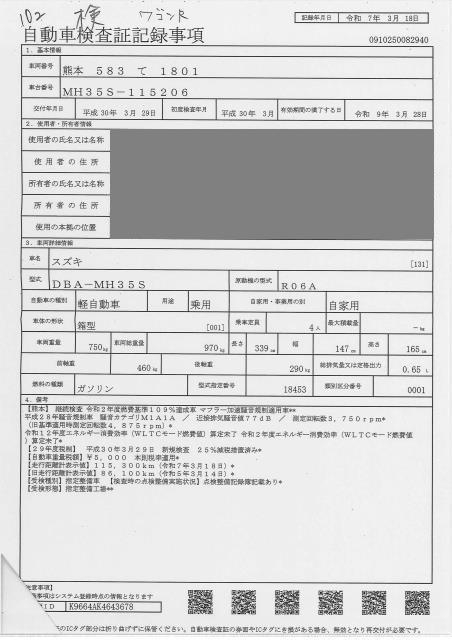 102 検 ワゴンR
記録年月日 令和 7年 3月 18日
自動車検査証記録事項
0910250082940
1．基本情報
車両番号 熊本 583 て 1801
車台番号 MH35S-115206
交付年月日 平成 30年 3月 29日 初度検査年月 平成 30年 3月 有効期間の満了する日 令和 9年 3月 28日
2．使用者・所有者情報
使用者の氏名又は名称
使用者の住所
所有者の氏名又は名称
所有者の住所
使用の本拠の位置
3．車両詳細情報
車名 スズキ [131]
型式 DBA-MH35S 原動機の型式 R06A
自動車の種別 軽自動車 用途 乗用 自家用・事業用の別 自家用
車体の形状 箱型 [001] 乗車定員 4人 最大積載量 -kg
車両重量 750kg 車両総重量 970kg 長さ 339cm 幅 147cm 高さ 165cm
前軸重 460kg 後軸重 290kg 総排気量又は定格出力 0.65 L
燃料の種類 ガソリン 型式指定番号 18453 類別区分番号 0001
4．備考
【熊本】 継続検査 令和2年度燃費基準109％達成車 マフラー加速騒音規制適用車**
平成28年騒音規制車 騒音カテゴリM1A1A ／ 近接排気騒音値77dB ／ 測定回転数3，750rpm*
（旧基準適用時測定回転数4，875rpm）*
令和12年度エネルギー消費効率（WLTCモード燃費値）算定未了 令和2年度エネルギー消費効率（WLTCモード燃費値
）算定未了*
【29年度税制】 平成30年3月29日 新規検査 25％減税措置済み*
【自動車重量税額】¥5，000 本則税率適用*
【走行距離計表示値】115，300km（令和7年3月18日）*
【旧走行距離計表示値】86，100km（令和5年3月14日）*
【受検種別】指定整備車 【検査時の点検整備実施状況】点検整備記録簿記載あり*
【受検形態】指定整備工場**
意事項】
事項はシステム登録時点の情報となります
ID K9664AK4643678
のICタグ部分は折り曲げずに保管ください。自動車検査証の券面やICタグにき損がある場合、無効となり再交付が必要です。